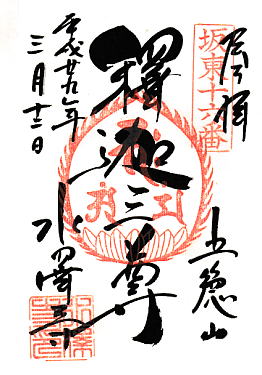 奉拝
坂東十六番
五徳山
釋迦三尊
水澤寺
平成廿九年
三月十二日